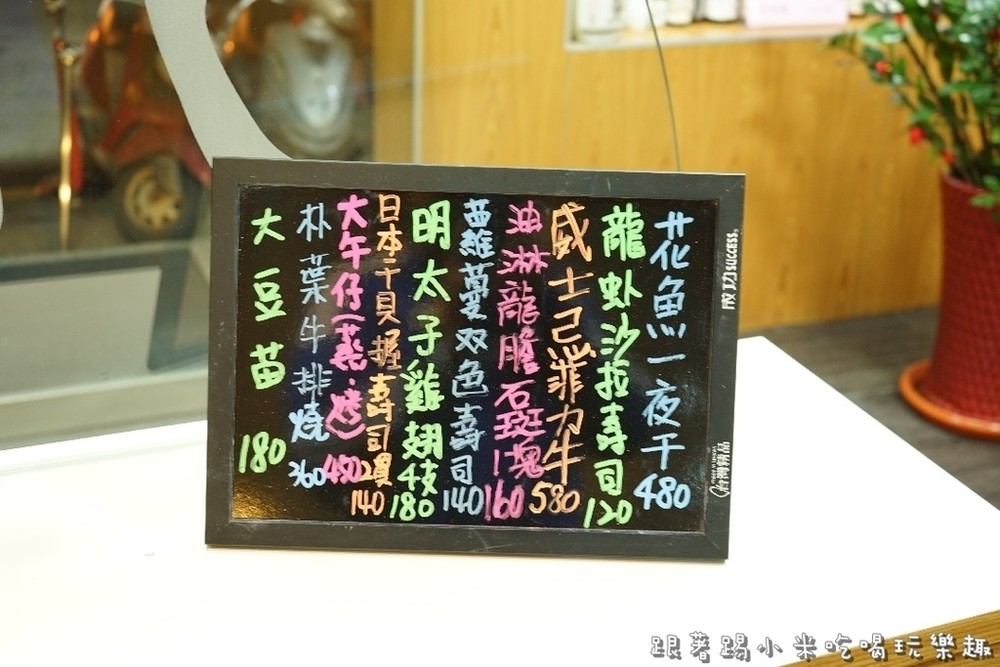 花魚一夜干 480
龍虾沙拉寿司 120
威士忌菲力牛 580
油淋龍膽石斑1塊 160
双色寿司 140
明太子雞翅4枝 180
日本干貝握壽司2貫 140
大午仔(蒸.烤)
朴葉牛排燒 360
大豆苗 180
成功 SUCCESS
台灣精品
跟著踢小米吃喝玩樂趣